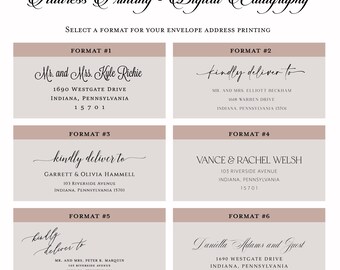 Address Printing - Digital Calligraphy
Select a format for your envelope address printing
FORMAT #1
Mr. and Mrs. Kyle Richie
1690 Westgate Drive
Indiana, Pennsylvania
15701
FORMAT #2
kindly deliver to
MR. AND MRS. ELLIOTT BECKHAM
1608 WARREN DRIVE
INDIANA, PENNSYLVANIA
FORMAT #3
kindly deliver to
Garrett & Olivia Hammell
103 Riverside Avenue
Indiana, Pennsylvania 15701
FORMAT #4
VANCE & RACHEL WELSH
103 RIVERSIDE AVENUE
INDIANA, PENNSYLVANIA
15701
FORMAT #5
kindly
deliver to
MR. AND MRS. PETER R. MARQUIS
103 RIVERSIDE AVENUE
FORMAT #6
Daniella Adams and Guest
1690 WESTGATE DRIVE
INDIANA, PENNSYLVANIA